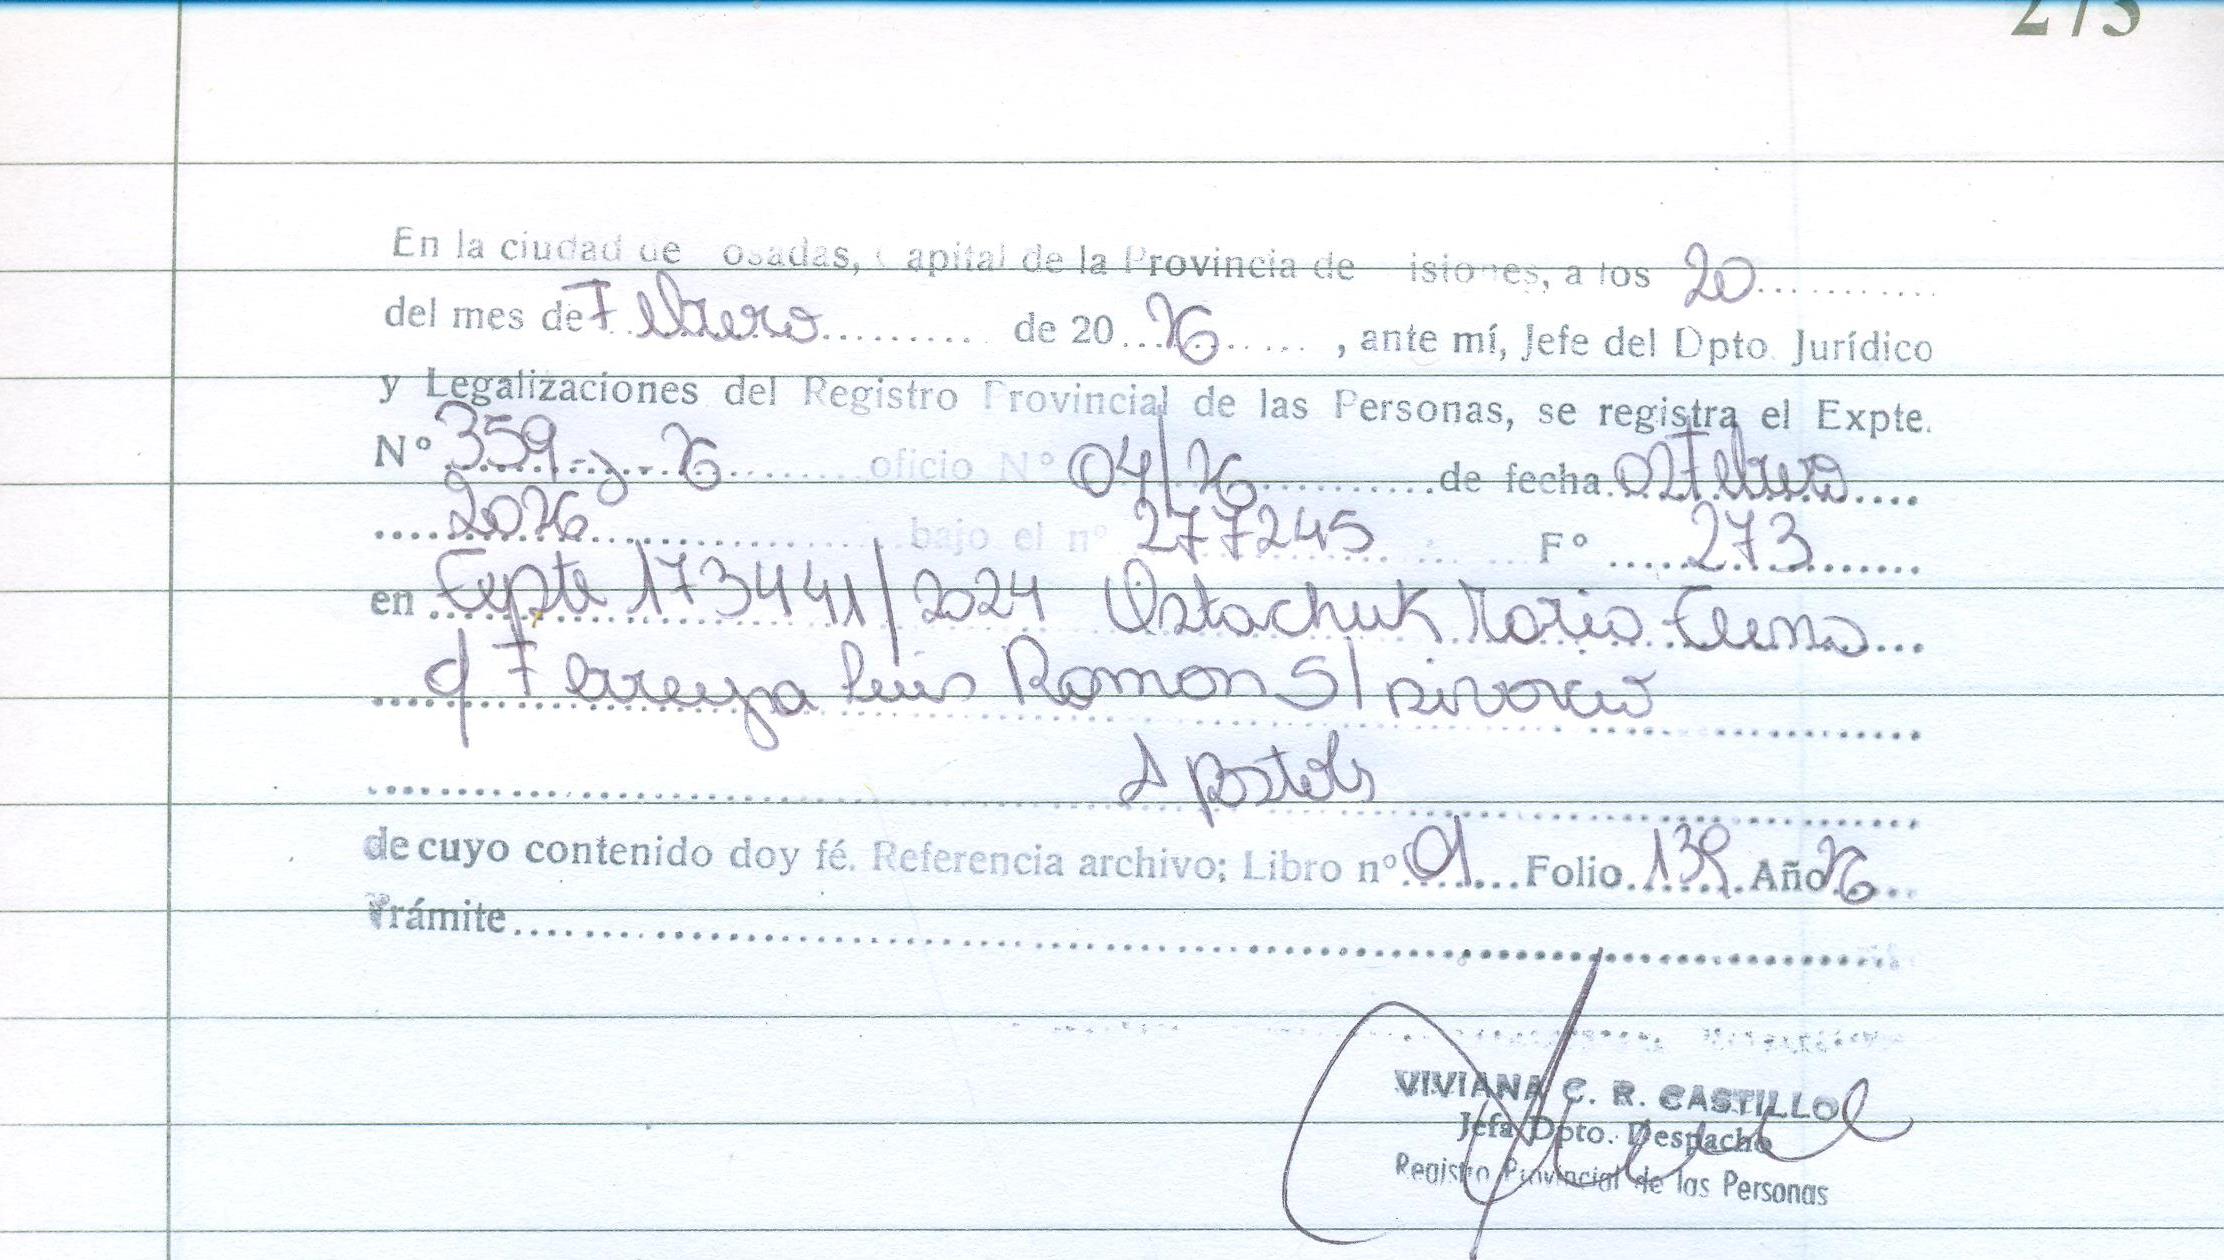 273
En la ciudad de Posadas, Capital de la Provincia de Misiones, a los 20
del mes de Febrero de 20 26, ante mí, Jefe del Dpto. Jurídico
y Legalizaciones del Registro Provincial de las Personas, se registra el Expte.
Nº 359 - J - 26 oficio Nº 04/26 de fecha 02 Febrero
2026 bajo el nº 277245 Fº 273
en Expte 173441/2024 Ostachuk Maria Elena
c/ Ferreyra Luis Ramon S/ Divorcio
Apostoles
de cuyo contenido doy fé. Referencia archivo; Libro nº 01 Folio 139 Año 26
Trámite
VIVIANA C. R. CASTILLO
Jefa Dpto. Despacho
Registro Provincial de las Personas